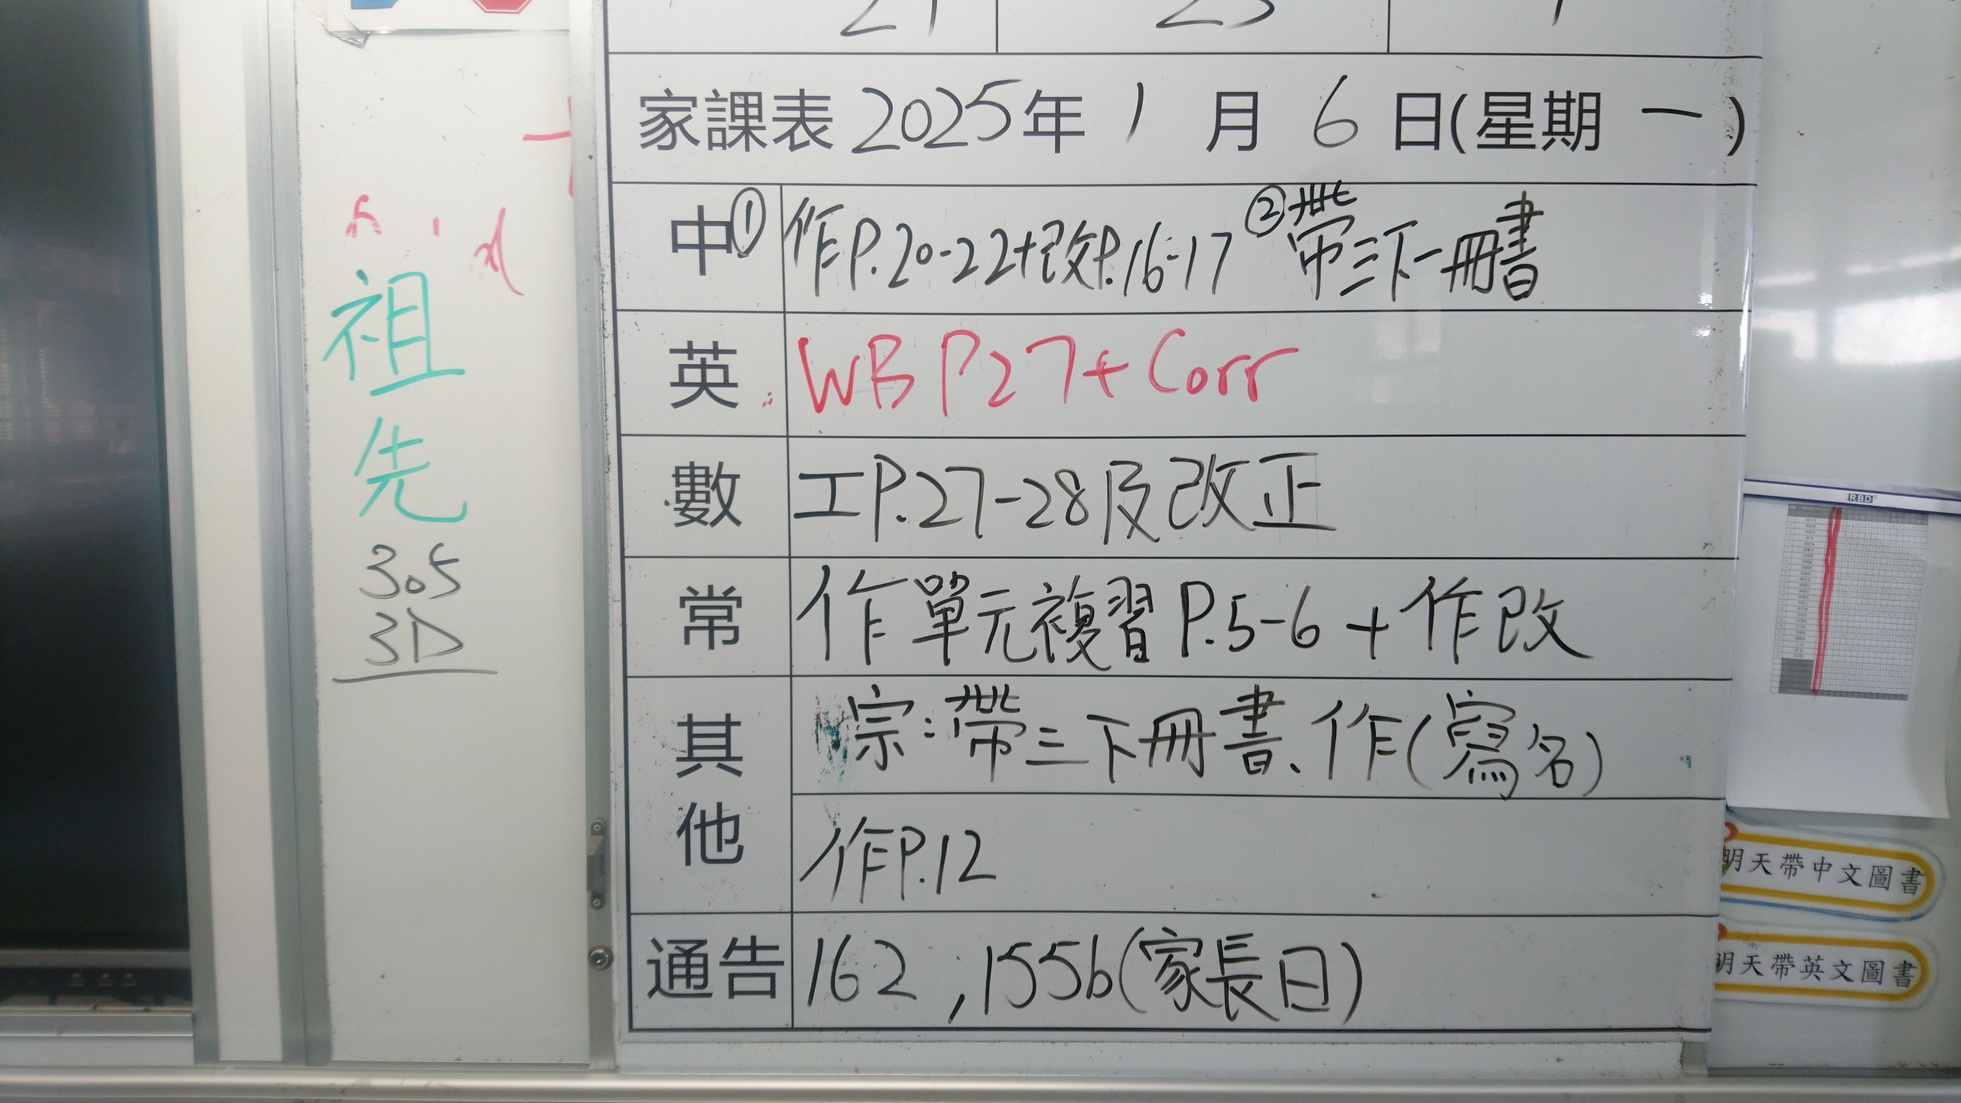 家課表 2025年 1 月 6 日(星期 一 )
中 ①作P.20-22+改P.16-17 ②帶三下一冊書
英 WB P27+ Corr
數 工P.27-28及改正
常 作單元複習P.5-6 + 作改
其他 宗:帶三下冊書、作(寫名)
作P.12
通告 162 , 155b(家長日)
祖先
305
3D
RBD
明天帶中文圖書
明天帶英文圖書